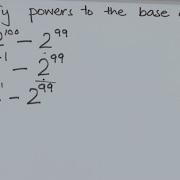 powers to the base
2¹⁰⁰ − 2⁹⁹
− 2⁹⁹
− 2⁹⁹